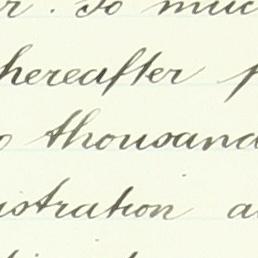 . To much
hereafter
thousand
istration a